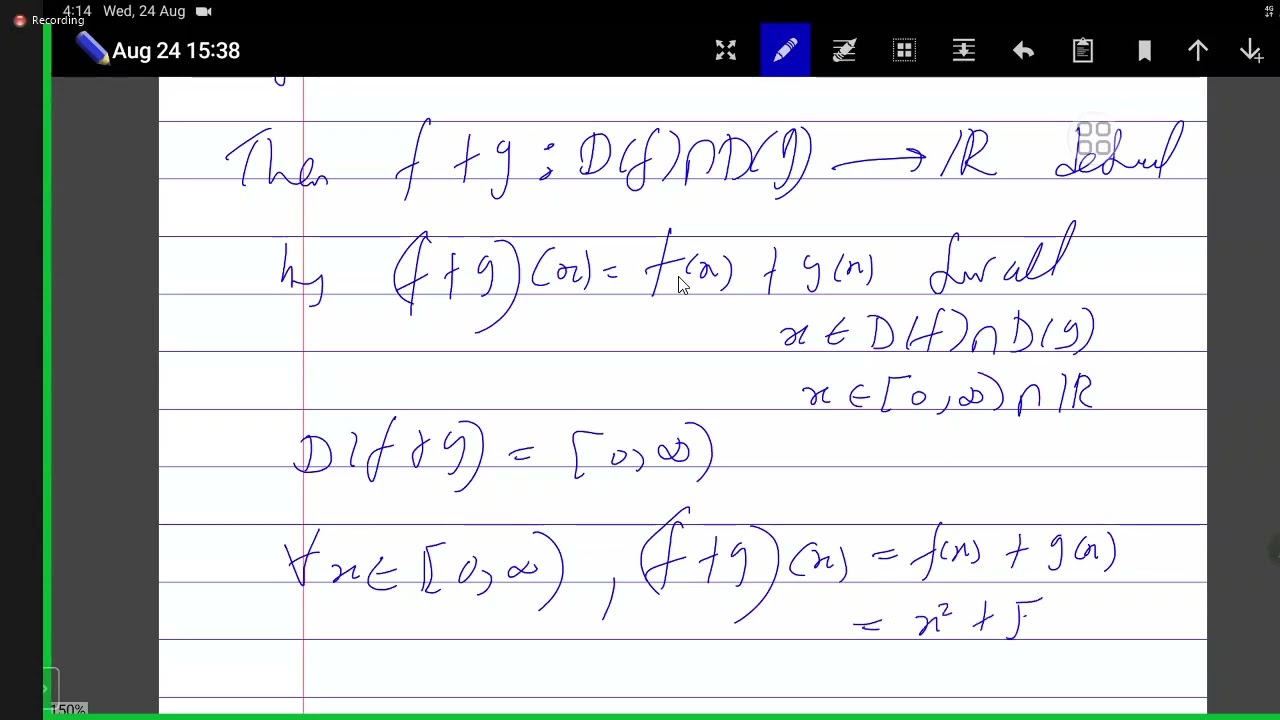 4:14 Wed, 24 Aug
4G
Recording
Aug 24 15:38
Then f + g : D(f) ∩ D(g) → ℝ defined
by (f + g)(x) = f(x) + g(x) for all
x ∈ D(f) ∩ D(g)
x ∈ [0, ∞) ∩ ℝ
D(f + g) = [0, ∞)
∀ x ∈ [0, ∞), (f + g)(x) = f(x) + g(x)
= x² +
150%